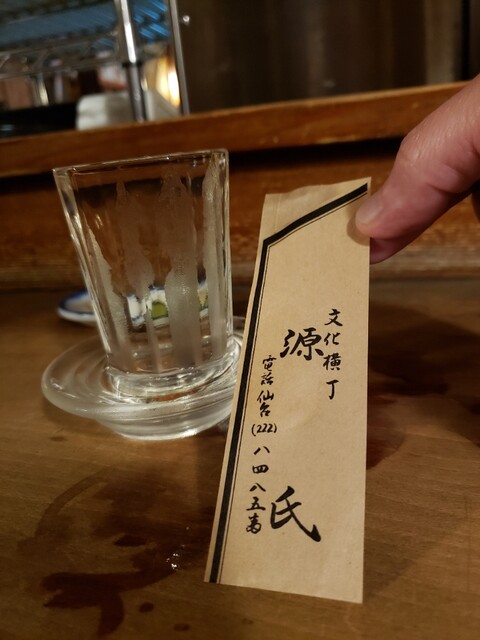 文化横丁
源氏
電話仙台(222)八四八五番